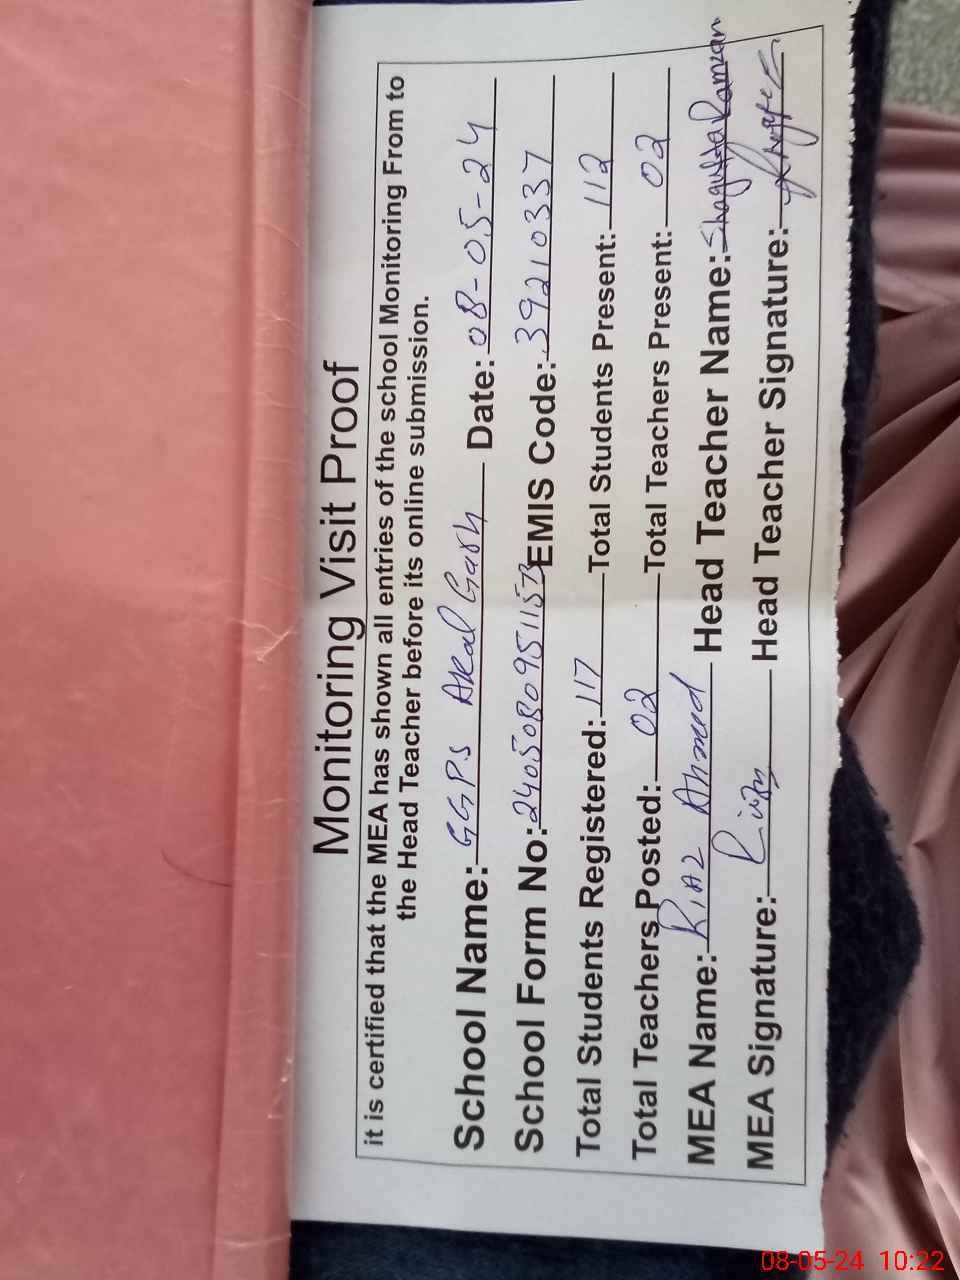 Monitoring Visit Proof
it is certified that the MEA has shown all entries of the school Monitoring From to
the Head Teacher before its online submission.
School Name: GGPS Akal Garh Date: 08-05-24
School Form No: 24050809511573 EMIS Code: 39210337
Total Students Registered: 117 Total Students Present: 112
Total Teachers Posted: 02 Total Teachers Present: 02
MEA Name: Riaz Ahmed Head Teacher Name: Shagufta Ramzan
MEA Signature: Head Teacher Signature:
08-05-24 10:22